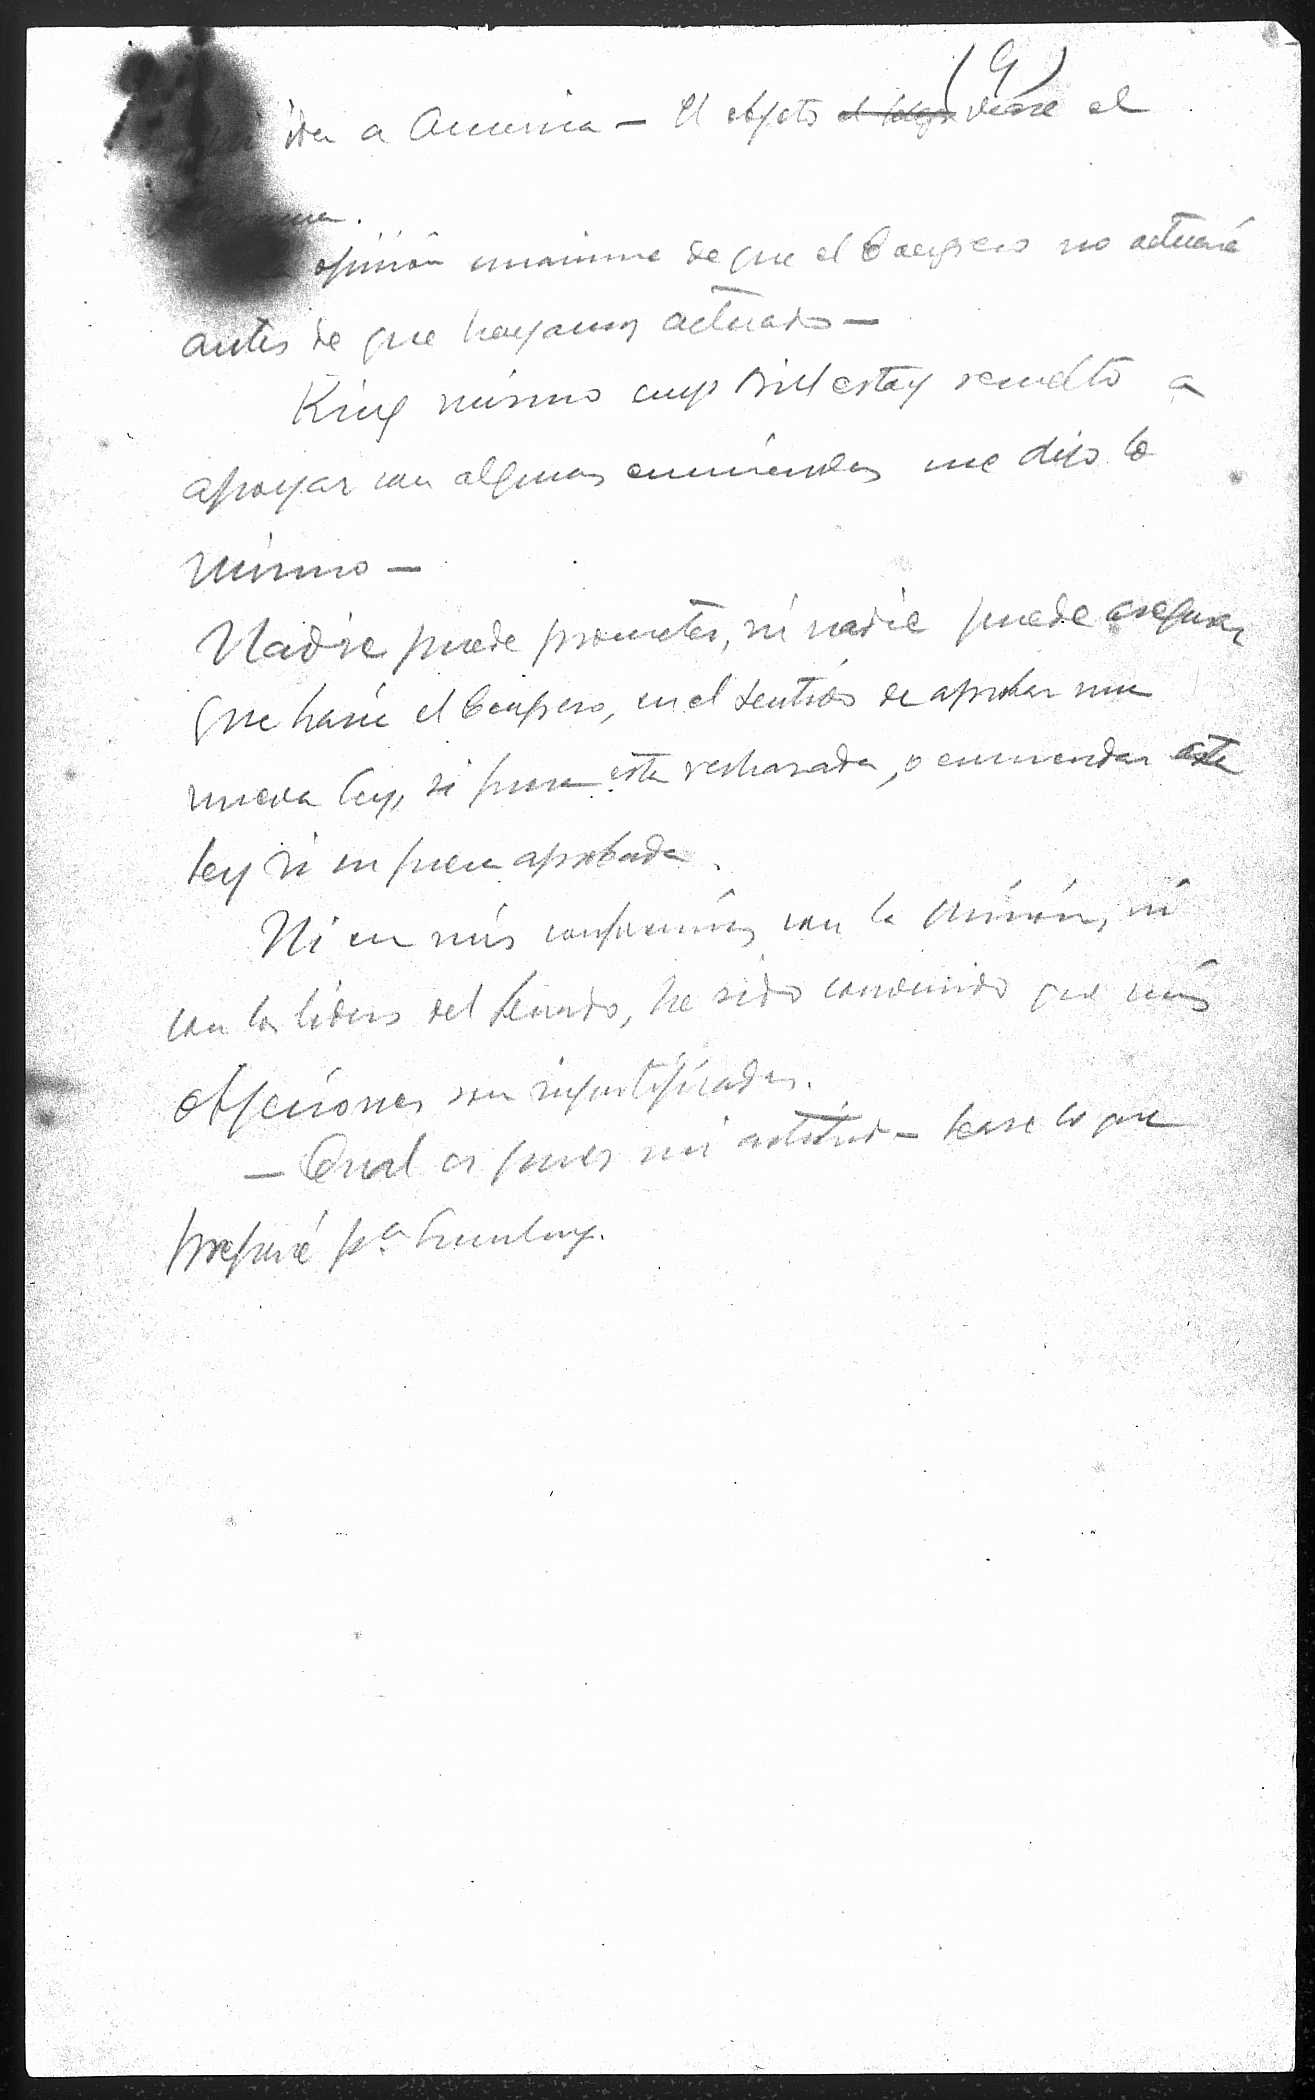 (9)
ida a America — El objeto el véase el
opinión unanime de que el Congreso no actuará
antes de que hayamos actuado —
King mismo cuyo Bill estoy resuelto a
apoyar con algunas enmiendas me dijo lo
mismo —
Nadie puede prometer, ni nadie puede asegurar
que hará el Congreso, en el sentido de aprobar una
nueva ley, si fuera esta rechazada, o enmendar esta
ley si en fuera aprobada.
Ni en mis con la Misión, ni
con los liders del Senado, he sido convencido que mis
objeciones son injustificadas.
— Cual es pues mi actitud — lease lo que
preparé pa